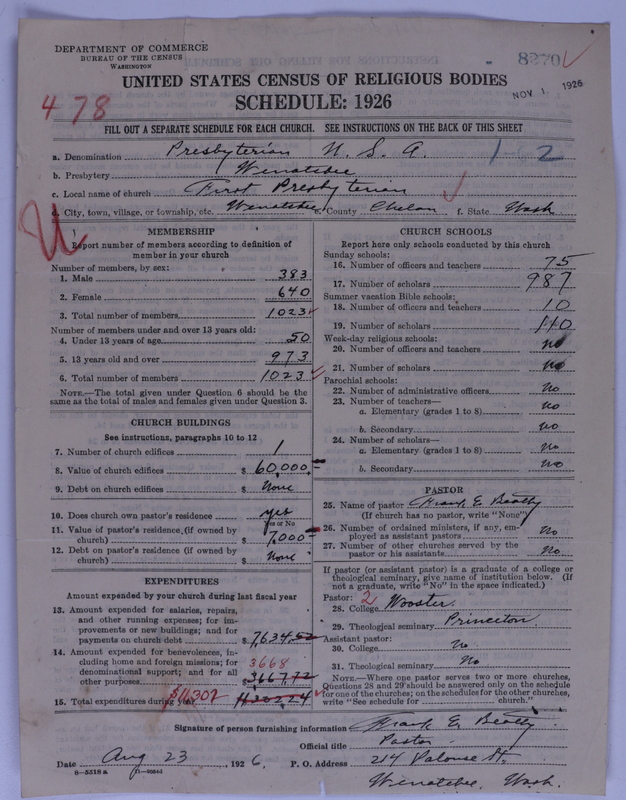 DEPARTMENT OF COMMERCE
BUREAU OF THE CENSUS
WASHINGTON
8270
UNITED STATES CENSUS OF RELIGIOUS BODIES
NOV 1 1926
478
SCHEDULE: 1926
FILL OUT A SEPARATE SCHEDULE FOR EACH CHURCH. SEE INSTRUCTIONS ON THE BACK OF THIS SHEET
a. Denomination Presbyterian U.S.A. 1-62
b. Presbytery Wenatchee
c. Local name of church First Presbyterian
d. City, town, village, or township, etc. Wenatchee e. County Chelan f. State Wash
MEMBERSHIP
Report number of members according to definition of
member in your church
Number of members, by sex:
1. Male 383
2. Female 640
3. Total number of members 1023
Number of members under and over 13 years old:
4. Under 13 years of age 50
5. 13 years old and over 973
6. Total number of members 1023
NOTE.—The total given under Question 6 should be
same as the total of males and females given under Question 3.
CHURCH BUILDINGS
See instructions, paragraphs 10 to 12
7. Number of church edifices 1
8. Value of church edifices $ 60,000.
9. Debt on church edifices $ None
10. Does church own pastor's residence yes
Yes or No
11. Value of pastor's residence (if owned by
church) $ 7,000
12. Debt on pastor's residence (if owned by
church) $ None
EXPENDITURES
Amount expended by your church during last fiscal year
13. Amount expended for salaries, repairs,
and other running expenses; for im-
provements or new buildings; and for
payments on church debt $ 7,634.52
14. Amount expended for benevolences, in-
cluding home and foreign missions; for 3668
denominational support; and for all
other purposes 3667.72
15. Total expenditures during year $11,302 11302.24
CHURCH SCHOOLS
Report here only schools conducted by this church
Sunday schools:
16. Number of officers and teachers 75
17. Number of scholars 987
Summer vacation Bible schools:
18. Number of officers and teachers 10
19. Number of scholars 140
Week-day religious schools:
20. Number of officers and teachers no
21. Number of scholars no
Parochial schools:
22. Number of administrative officers No
23. Number of teachers—
a. Elementary (grades 1 to 8) no
b. Secondary no
24. Number of scholars—
a. Elementary (grades 1 to 8) No
b. Secondary No
PASTOR
25. Name of pastor Frank E. Beatty
(If church has no pastor, write "None")
26. Number of ordained ministers, if any, em-
ployed as assistant pastors No
27. Number of other churches served by the
pastor or his assistants No
If pastor (or assistant pastor) is a graduate of a college or
theological seminary, give name of institution below. (If
not a graduate, write "No" in the space indicated.)
Pastor: 2
28. College Wooster
29. Theological seminary Princeton
Assistant pastor:
30. College No
31. Theological seminary No
NOTE.—Where one pastor serves two or more churches,
Questions 28 and 29 should be answered only on the schedule
for one of the churches; on the schedules for the other churches,
write "See schedule for church."
Signature of person furnishing information Frank E. Beatty
Official title Pastor
Date Aug 23, 1926. P. O. Address 214 Palouse St.
8—5518 a
Wenatchee, Wash.